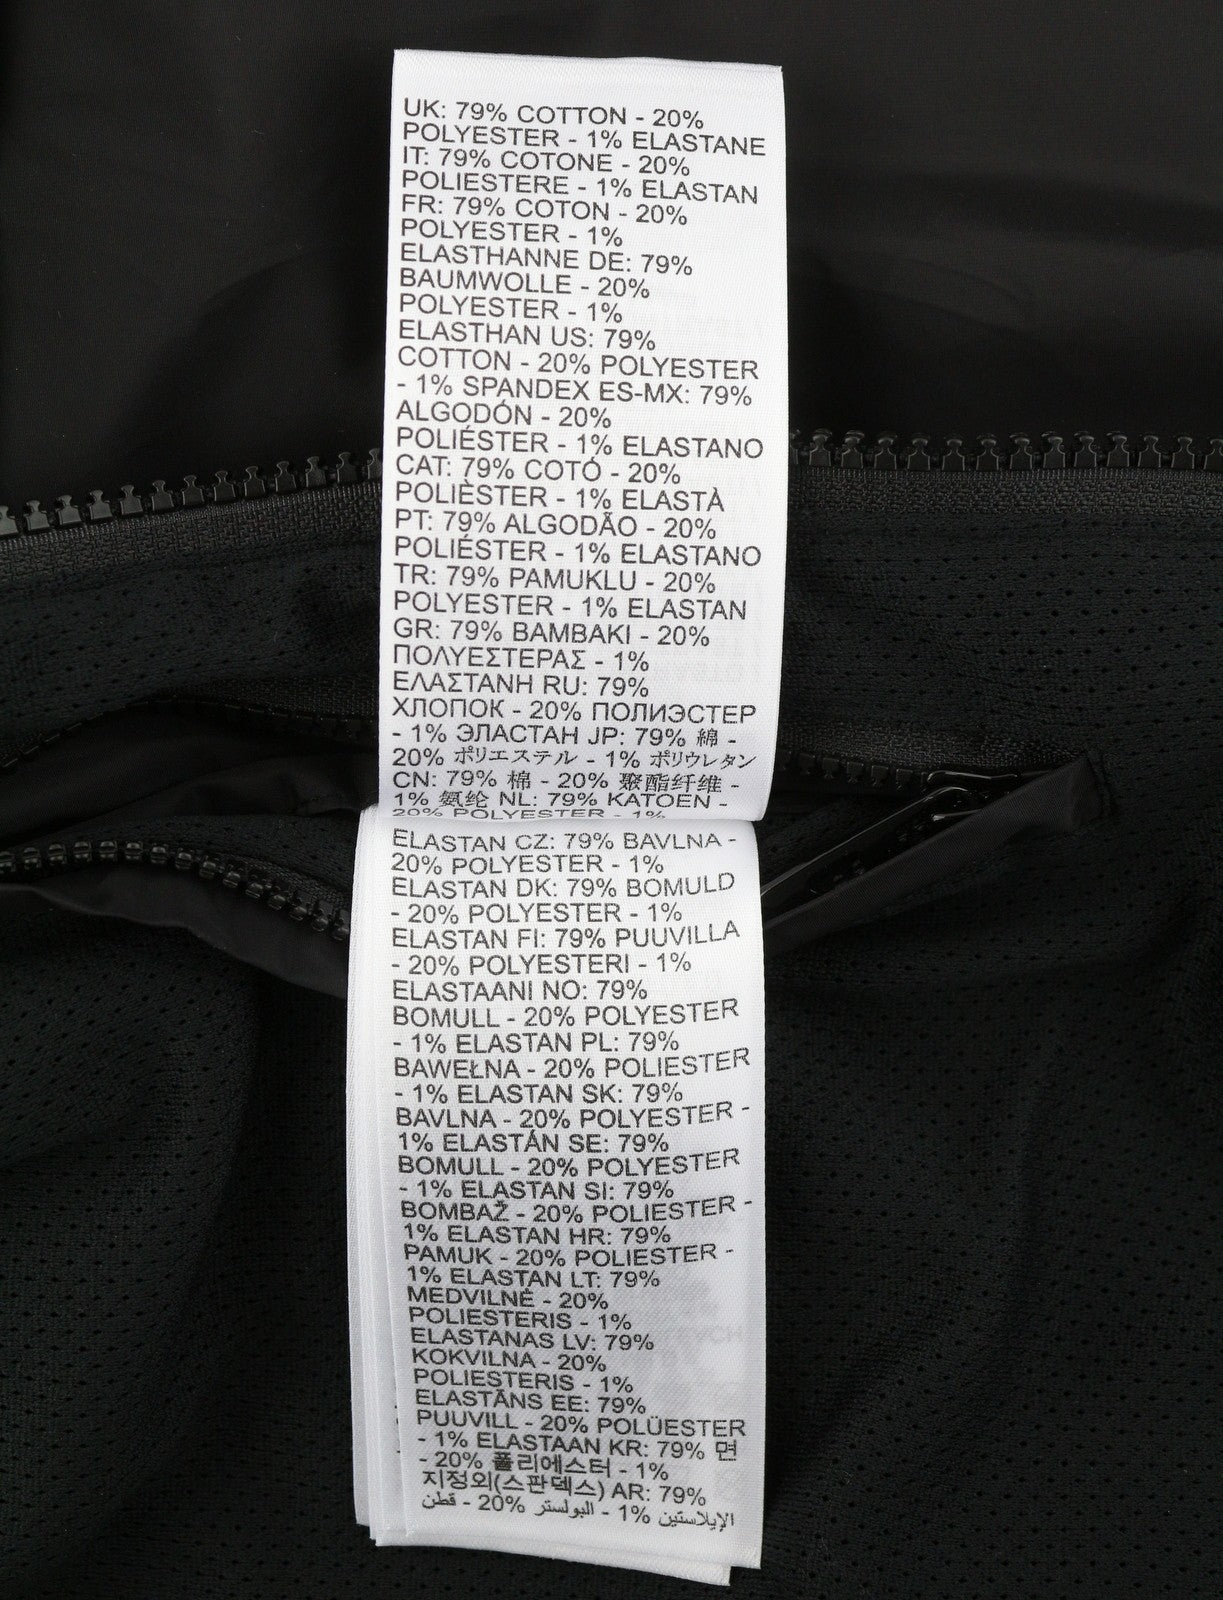 UK: 79% COTTON - 20%
POLYESTER - 1% ELASTANE
IT: 79% COTONE - 20%
POLIESTERE - 1% ELASTAN
FR: 79% COTON - 20%
POLYESTER - 1%
ELASTHANNE DE: 79%
BAUMWOLLE - 20%
POLYESTER - 1%
ELASTHAN US: 79%
COTTON - 20% POLYESTER
- 1% SPANDEX ES-MX: 79%
ALGODÓN - 20%
POLIÉSTER - 1% ELASTANO
CAT: 79% COTÓ - 20%
POLIÈSTER - 1% ELASTÀ
PT: 79% ALGODÃO - 20%
POLIÉSTER - 1% ELASTANO
TR: 79% PAMUKLU - 20%
POLYESTER - 1% ELASTAN
GR: 79% ΒΑΜΒΑΚΙ - 20%
ΠΟΛΥΕΣΤΕΡΑΣ - 1%
ΕΛΑΣΤΑΝΗ RU: 79%
ХЛОПОК - 20% ПОЛИЭСТЕР
- 1% ЭЛАСТАН JP: 79% 綿 -
20% ポリエステル - 1% ポリウレタン
CN: 79% 棉 - 20% 聚酯纤维 -
1% 氨纶 NL: 79% KATOEN -
20% POLYESTER - 1%
ELASTAN CZ: 79% BAVLNA -
20% POLYESTER - 1%
ELASTAN DK: 79% BOMULD
- 20% POLYESTER - 1%
ELASTAN FI: 79% PUUVILLA
- 20% POLYESTERI - 1%
ELASTAANI NO: 79%
BOMULL - 20% POLYESTER
- 1% ELASTAN PL: 79%
BAWEŁNA - 20% POLIESTER
- 1% ELASTAN SK: 79%
BAVLNA - 20% POLYESTER -
1% ELASTÁN SE: 79%
BOMULL - 20% POLYESTER
- 1% ELASTAN SI: 79%
BOMBAŽ - 20% POLIESTER -
1% ELASTAN HR: 79%
PAMUK - 20% POLIESTER -
1% ELASTAN LT: 79%
MEDVILNĖ - 20%
POLIESTERIS - 1%
ELASTANAS LV: 79%
KOKVILNA - 20%
POLIESTERIS - 1%
ELASTĀNS EE: 79%
PUUVILL - 20% POLÜESTER
- 1% ELASTAAN KR: 79% 면
- 20% 폴리에스터 - 1%
지정외(스판덱스) AR: 79%
قطن - 20% البولستر - 1% الإيلاستين